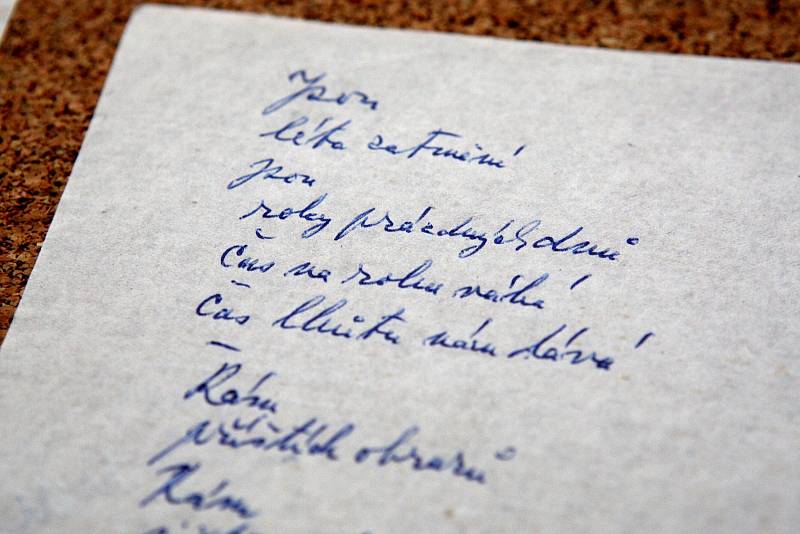 Jsou
léta zatmění
jsou
roky prázdných dnů
čas na rohu váhá
čas lhůtu nám dává
–
Rám
příštích obrazů
Rám